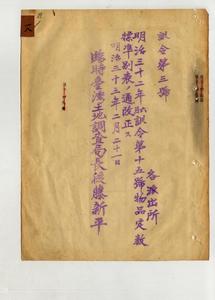 訓令第三號
各派出所
明治三十二年訓令第十五號物品定數
標準別表ノ通改正ス
明治三十三年二月二十一日
臨時臺灣土地調查局長後藤新平